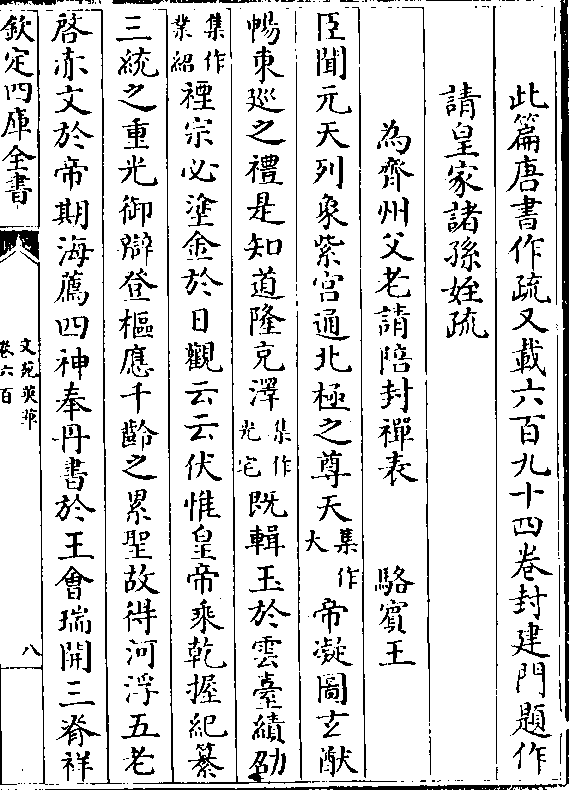 此篇唐書作疏又載六百九十四卷封建門題作
請皇家諸孫姪疏
為齊州父老請陪封禪表 駱賓王
臣聞元天列象紫宮通北極之尊天集作大帝凝圖玄猷
暢東巡之禮是知道隆克澤集作光宅既輯玉於雲臺績劭
集作業紹禋宗必塗金於日觀云云伏惟皇帝乘乾握紀纂
三統之重光御辯登樞應千齡之累聖故得河浮五老
啓赤文於帝期海薦四神奉丹書於王會瑞開三脊祥
欽定四庫全書
文苑英華
卷六百
八